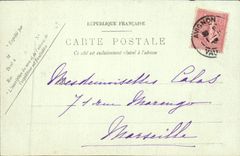 RÉPUBLIQUE FRANÇAISE
CARTE POSTALE
Ce côté est exclusivement réservé à l'adresse
AVIGNON
Mesdemoiselles Calas
71 rue Marengo
Marseille